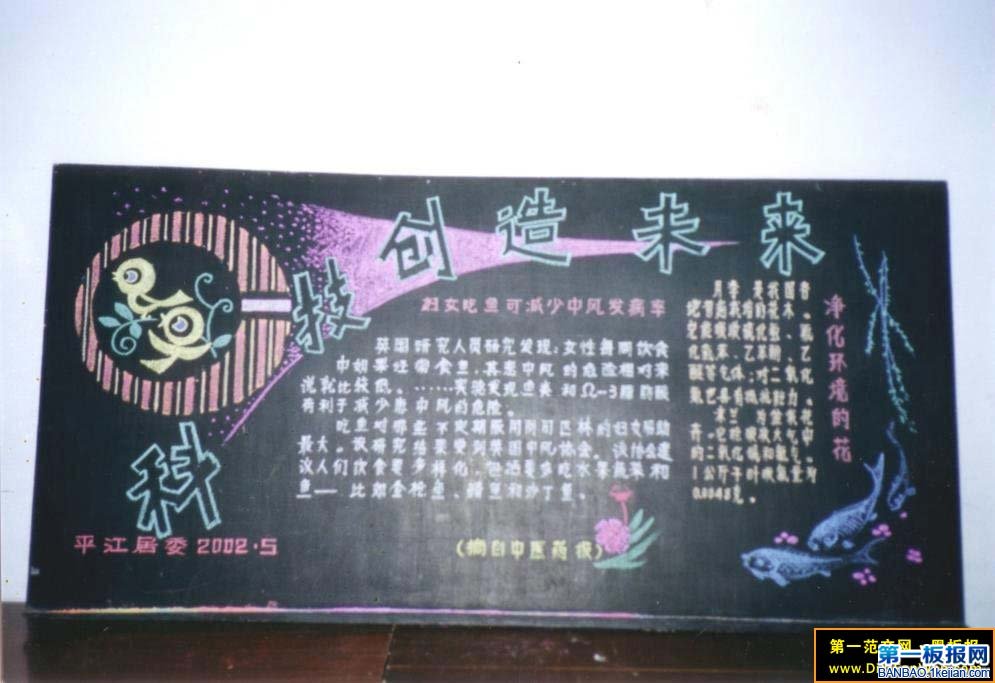 科技创造未来
妇女吃鱼可减少中风发病率
英国研究人员研究发现：女性每周饮食
中如果经常食鱼，其患中风的危险相对来
说就比较低。……实验发现鱼类和Ω-3脂肪酸
有利于减少患中风的危险。
吃鱼对那些不定期服用阿司匹林的妇女帮助
最大。该研究结果受到英国中风协会。该协会建
议人们饮食要多样化，包括要多吃水果蔬菜和
鱼——比如金枪鱼、鲭鱼和沙丁鱼。
(摘自中医药报)
净化环境的花
月季 是我国普
的花木。
乙苯酚、乙
气体；对二氧化
米兰 为盆栽花
吸收大气中
的二氧化硫和氯气。
1公斤干叶吸氯量为
0.0048克。
平江居委2002.5
第一范文网 黑板报
第一板报网
BANBAO.1kejian.com